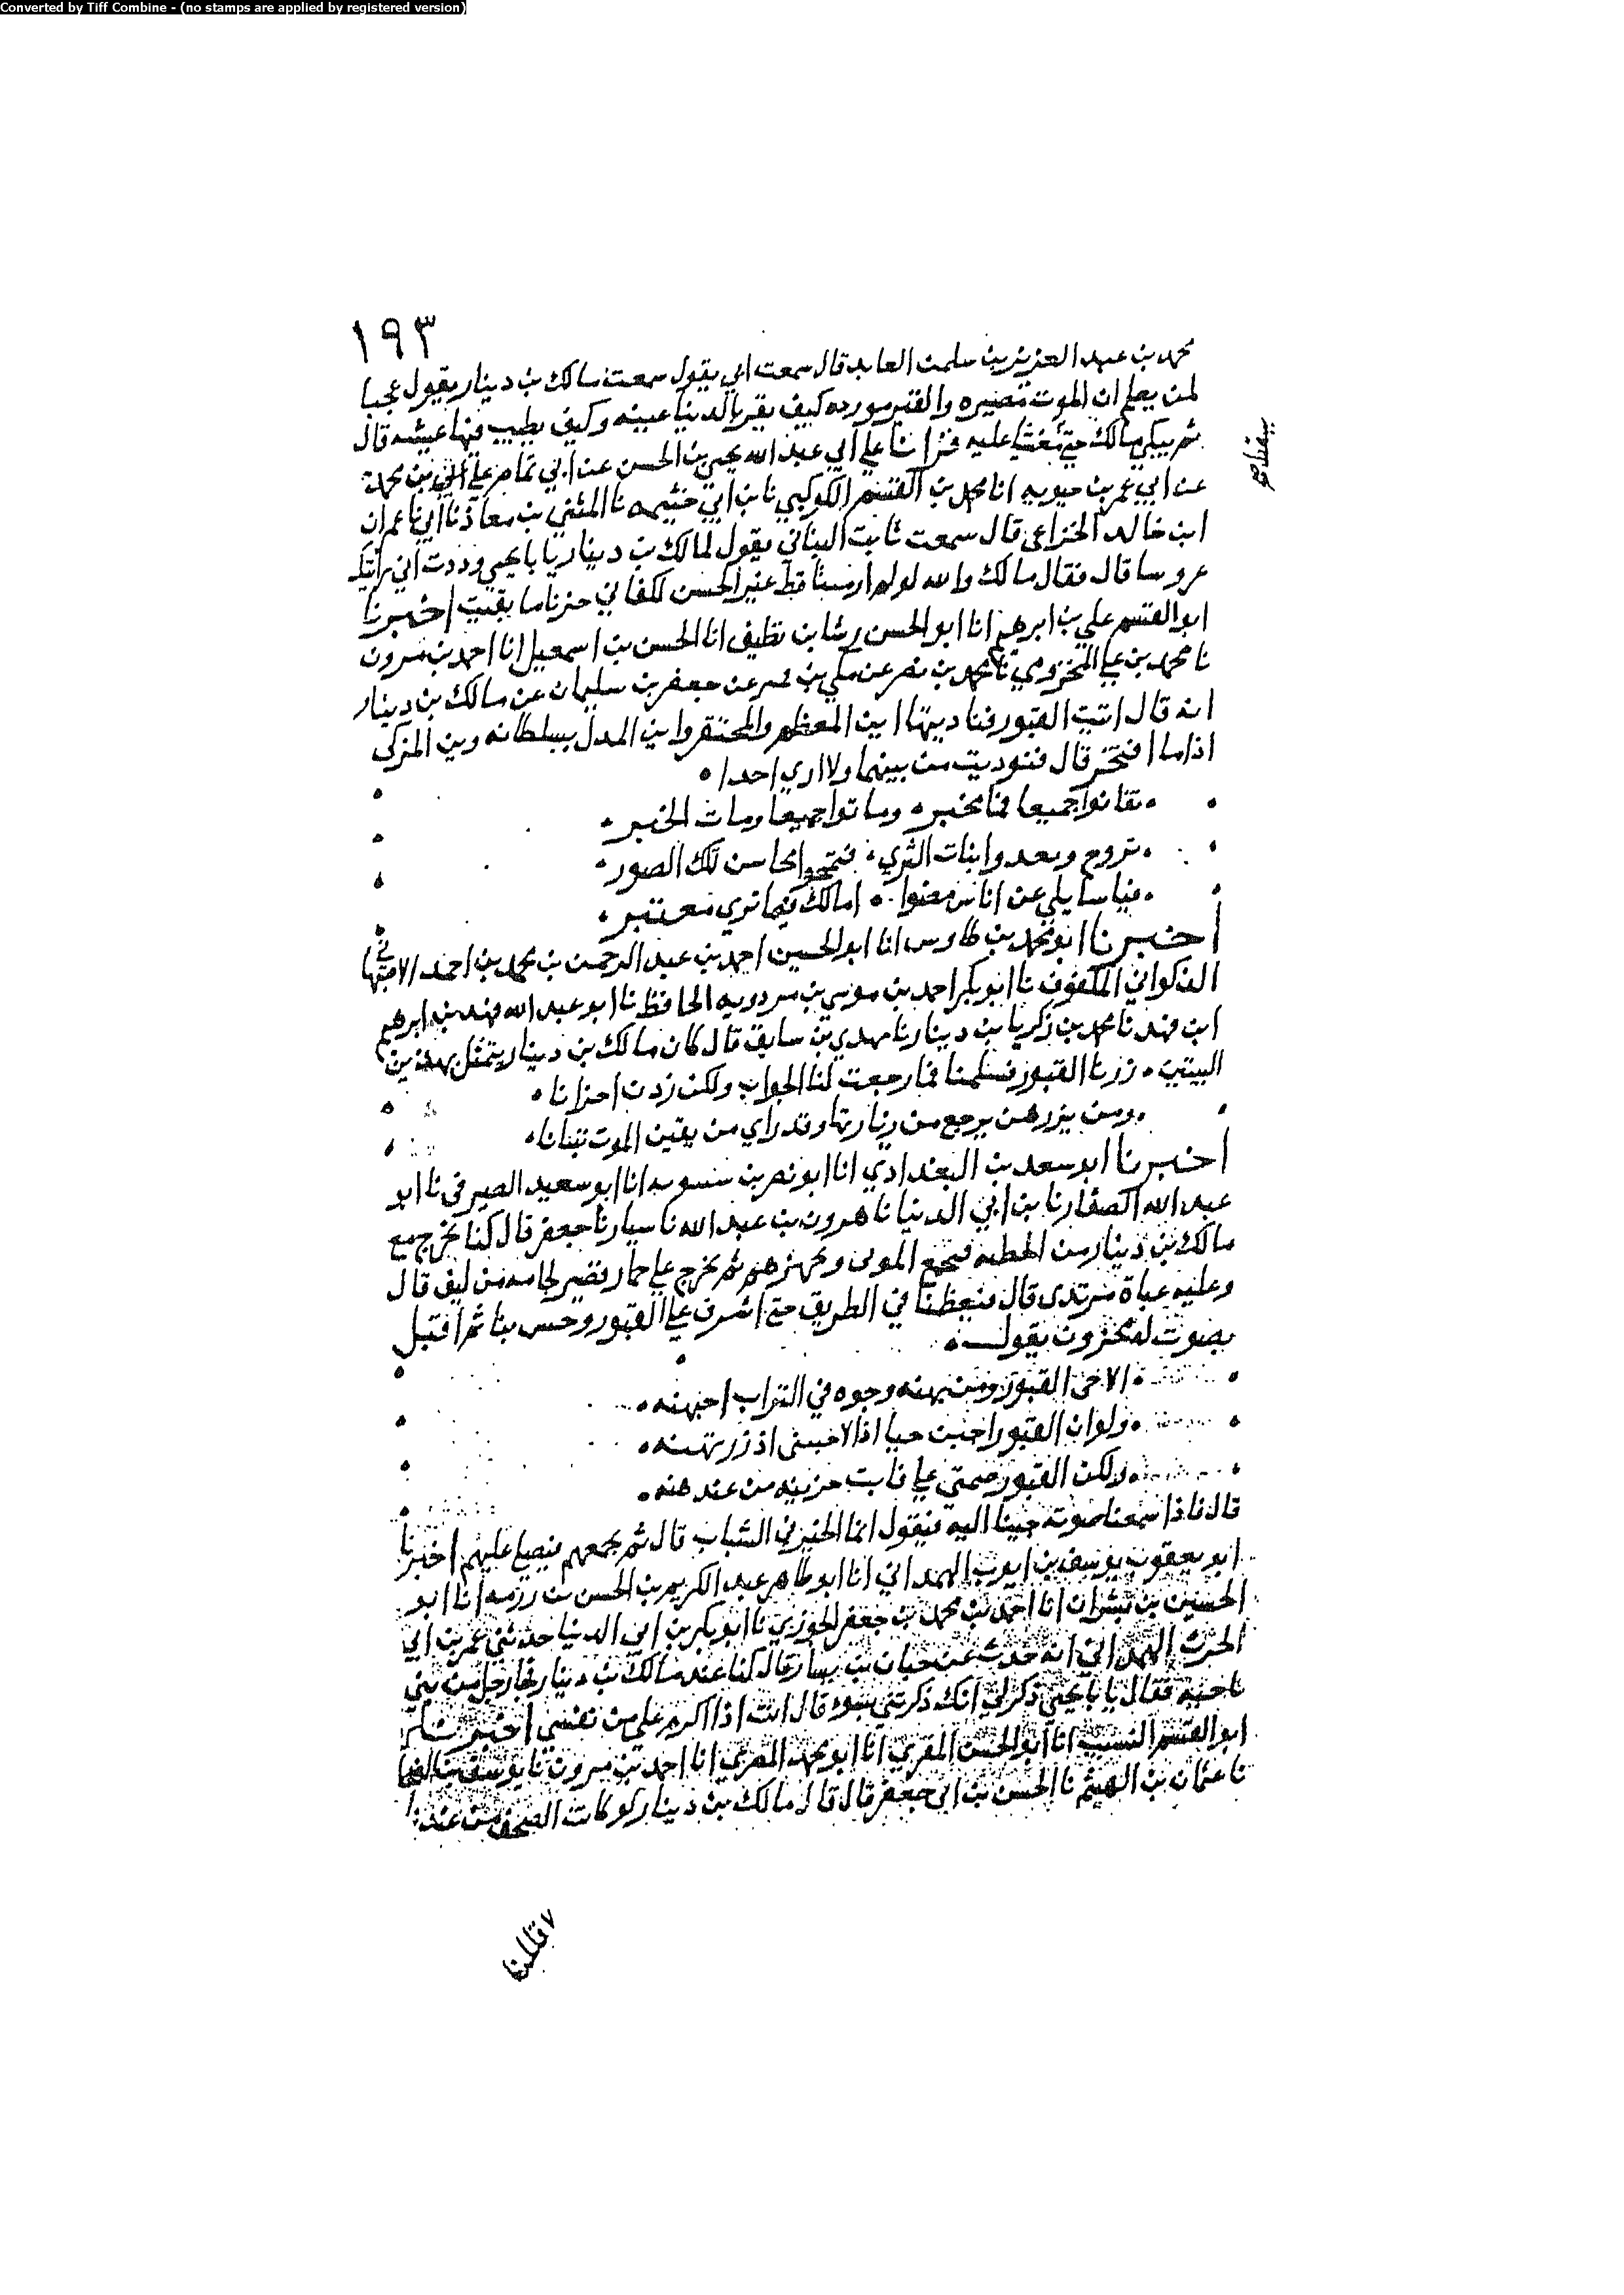 Converted by Tiff Combine - (no stamps are applied by registered version)
١٩٣
محمد بن عبد العزيز بن سلمن العابد قال سمعت ابي يقول سمعت مالك بن دينار يقول عجبا
لمن يعلم ان الموت مصيره والقبر مورده كيف يقر بالدنيا عينه وكيف يطيب فيها عيشه قال
ثم يبكي مالك حتى يغشى عليه قرانا على ابي عبد الله يحيى بن الحسن عن ابي تمام علي بن محمد
عن ابي عمر بن حيويه انا محمد بن القسم الكوكبي نا بن ابي خثيمه نا المثنى بن معاذ نا ابي نا عمران
ابن خالد الخزاعي قال سمعت ثابت البناني يقول لمالك بن دينار يا با يحيى وددت اني رايتك
عروسا قال فقال مالك والله لو لم ار ميتا قط غير الحسن لكفاني حزنا ما بقيت اخبرنا
ابو القسم علي بن ابرهيم انا ابو الحسن رشا بن نظيف انا الحسن بن اسمعيل انا احمد بن مرون
نا محمد بن علي المخزومي نا محمد بن نصر عن مكي بن عمر عن جعفر بن سليمان عن مالك بن دينار
انه قال اتيت القبور فناديتها اين المعظم والمحتقر واين المدل بسلطانه واين المزكى
اذا ما افتخر قال فنوديت من بينها ولا ارى احدا
تفانوا جميعا فما مخبر وماتوا جميعا ومات الخبر
تروح وتغدوا بنات الثرى فتمحوا محاسن تلك الصور
فيا سايلي عن اناس مضوا امالك فيما ترى معتبر
اخبرنا ابو محمد بن طاوس انا ابو الحسين احمد بن عبد الرحمن بن محمد بن احمد الاصبهاني
الذكواني المكفوف نا ابو بكر احمد بن موسى بن مردويه الحافظ نا ابو عبد الله فهد بن ابرهيم
ابن فهد نا محمد بن زكريا بن دينار نا مهدي بن سابق قال كان مالك بن دينار يتمثل بهذين
البيتين زرنا القبور فسلمنا فما رجعت لنا الجواب ولكن زدن احزانا
ومن يزرهن يرجع من زيارتها وقد راي من يقين الموت تبيانا
اخبرنا ابو سعد بن البغدادي انا ابو نصر بن سسويه انا ابو سعيد الصيرفي نا ابو
عبد الله الصفار نا بن ابي الدنيا نا هرون بن عبد الله نا سيار نا جعفر قال كنا نخرج مع
مالك بن دينار من الحطمه فيجمع الموتى ويجهزهم ثم يخرج على حمار قصير لجامه من ليف قال
وعليه عباة مرتدى قال فيعظنا في الطريق حتى اشرف على القبور وحس بنا ثم اقبل
بصوت له محزون يقول
الا حي القبور ومن بهنه وجوه في التراب احبهنه
ولو ان القبور اجبن حيا اذا لاجبنني اذ زرتهنه
ولكن القبور صمتن عني فابت حزينه من عندهنه
قال فاذا سمعنا صوته جينا اليه فيقول انما الخير في الشباب قال ثم يجمعهم فيصلي عليهم اخبرنا
ابو يعقوب يوسف بن ايوب الهمداني انا ابو طاهر عبد الكريم بن الحسن بن رزمه انا ابو
الحسين بن بشران انا احمد بن محمد بن جعفر الجوزي نا ابو بكر بن ابي الدنيا حدثني عمر بن ابي
الحرث الهمداني انه حدث عن حيان بن يسار قال كنا عند مالك بن دينار فجا رجل من بني
ناجيه فقال يا با يحيى ذكر لي انك ذكرتني بسو قال انت اذا اكرم علي من نفسي اخبرنا
ابو القسم النسيب انا ابو الحسن المقري انا ابو محمد المصري انا احمد بن مرون نا يوسف بن
نا عثمان بن الهيثم نا الحسن بن ابي جعفر قال قال مالك بن دينار لو كانت الصحف من عندنا